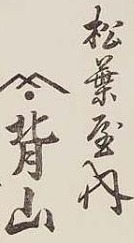 松葉屋内
背山